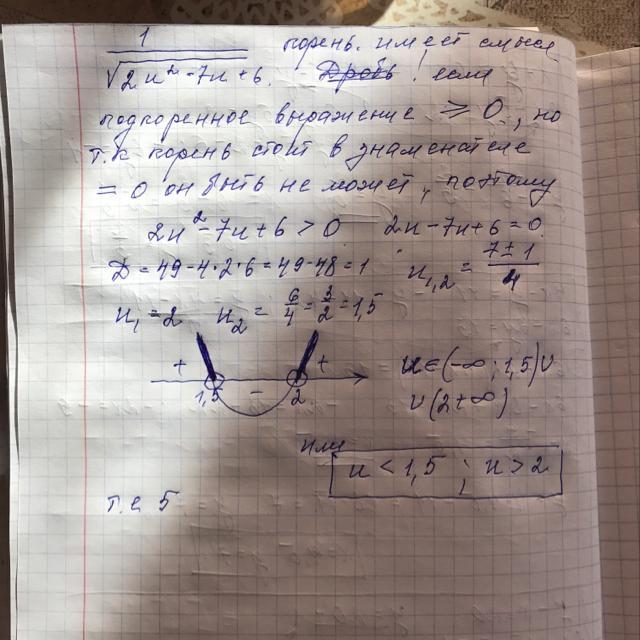 1 / √2x²-7x+6. корень имеет смысл
Дробь, если
подкоренное выражение ⩾ 0, но
т.к корень стоит в знаменателе
= 0 он быть не может, поэтому
2x²-7x+6 > 0 2x-7x+6=0
D = 49-4·2·6=49-48=1 x₁,₂ = 7±1 / 4
x₁ = 2 x₂ = 6/4 = 3/2 = 1,5
+ - +
1,5 2
x∈(-∞; 1,5)∪
∪(2+∞)
или
x < 1,5 ; x > 2
т.е 5